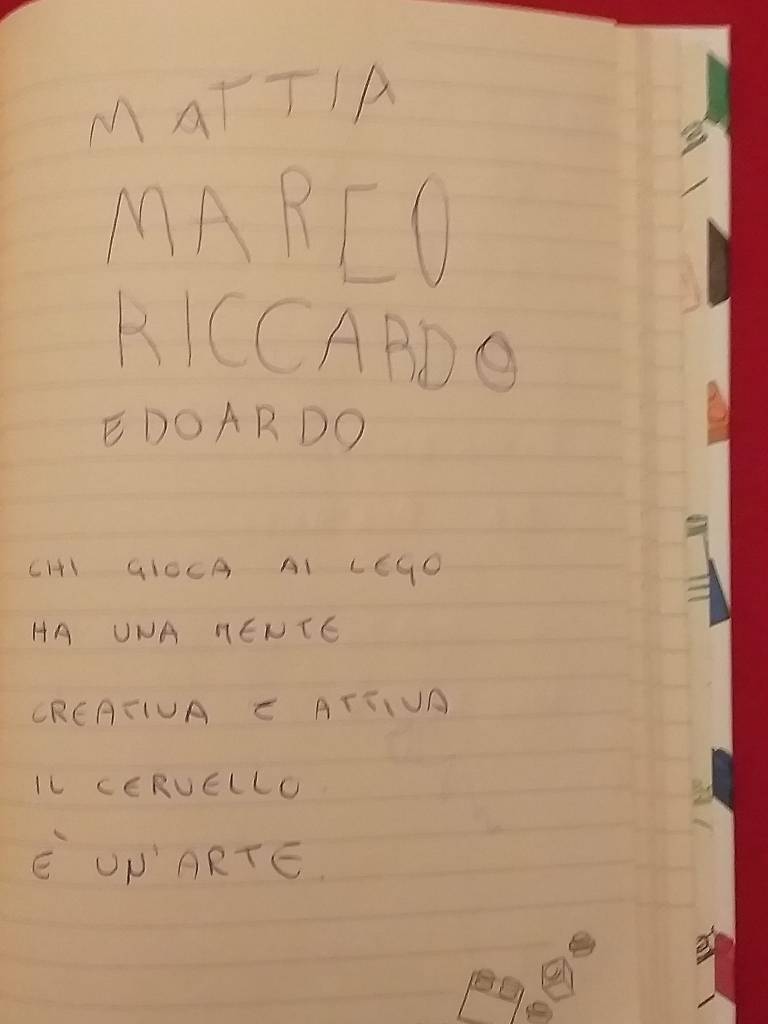 MATTIA
MARCO
RICCARDO
EDOARDO
CHI GIOCA AI LEGO
HA UNA MENTE
CREATIVA E ATTIVA
IL CERVELLO
È UN'ARTE.